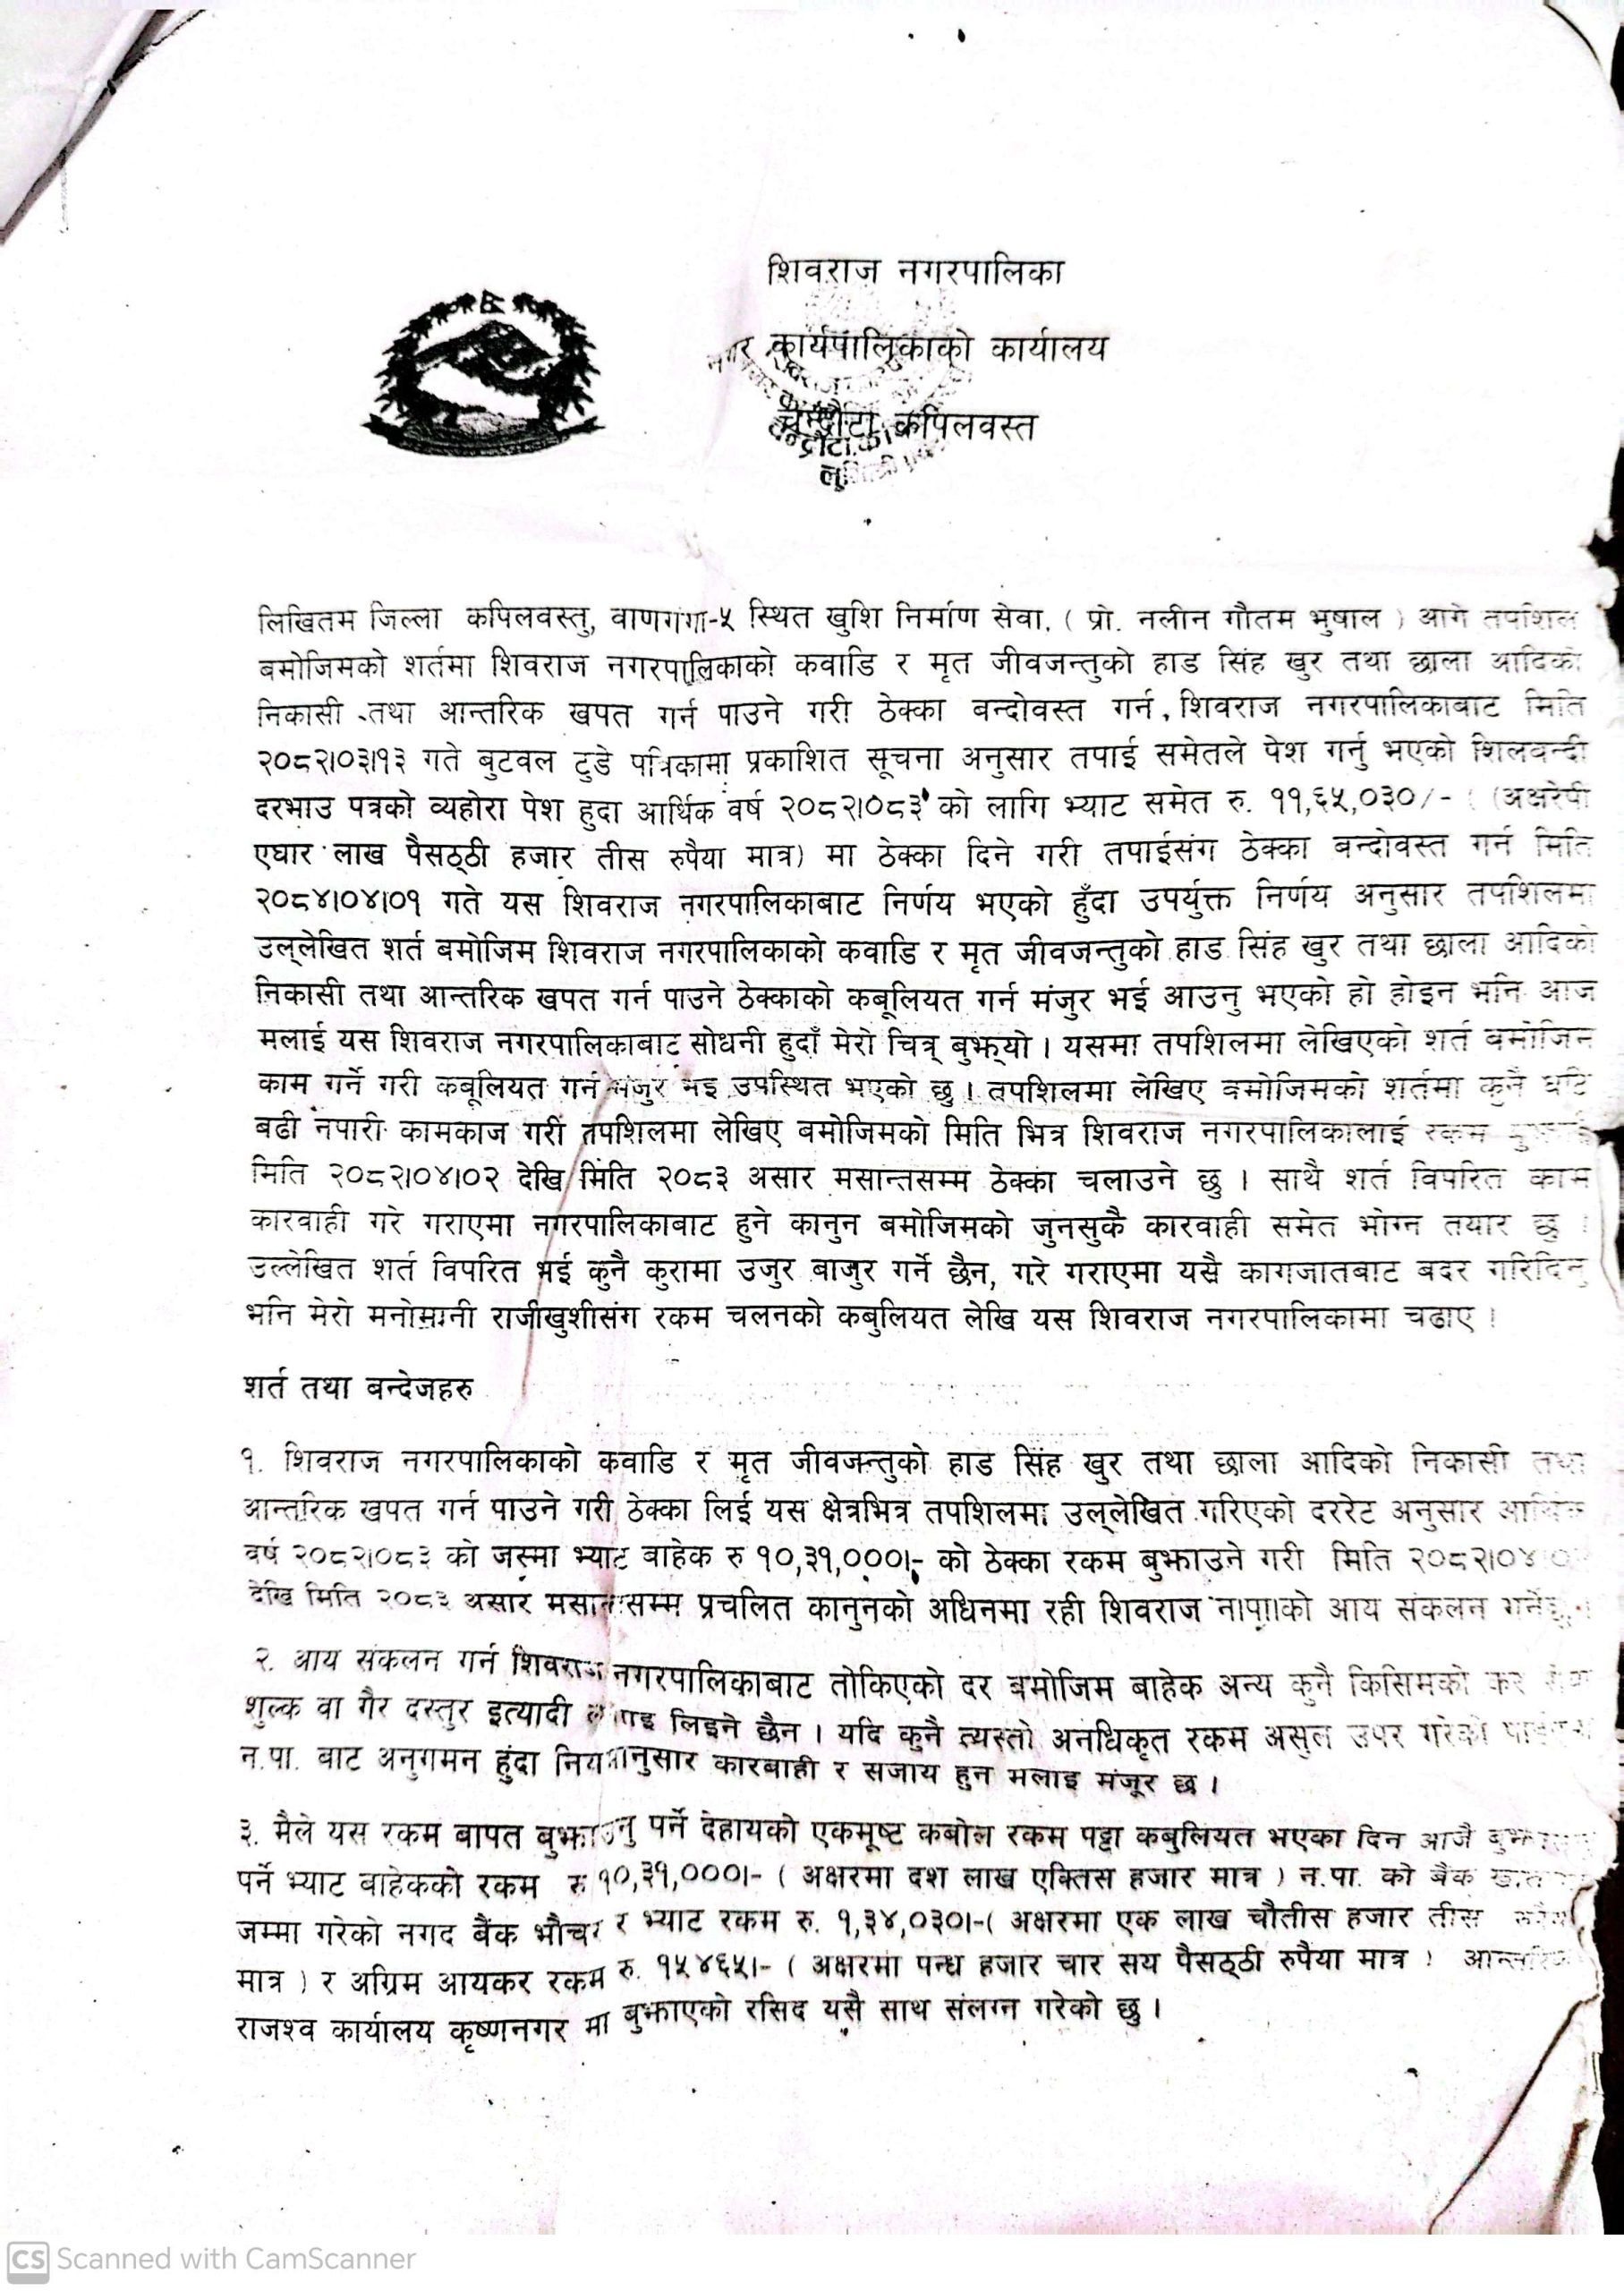 शिवराज नगरपालिका
नगर कार्यपालिकाको कार्यालय
चन्द्रौटा कपिलवस्त
लिखितम जिल्ला कपिलवस्तु, वाणगंगा-५ स्थित खुशि निर्माण सेवा, ( प्रो. नलीन गौतम भुषाल ) आगे तपशिल
बमोजिमको शर्तमा शिवराज नगरपालिकाको कवाडि र मृत जीवजन्तुको हाड सिंह खुर तथा छाला आदिको
निकासी तथा आन्तरिक खपत गर्न पाउने गरी ठेक्का बन्दोवस्त गर्न, शिवराज नगरपालिकाबाट मिति
२०८२।०३।१३ गते बुटवल टुडे पत्रिकामा प्रकाशित सूचना अनुसार तपाई समेतले पेश गर्नु भएको शिलवन्दी
दरभाउ पत्रको व्यहोरा पेश हुदा आर्थिक वर्ष २०८२।०८३ को लागि भ्याट समेत रु. ११,६५,०३०/- ( (अक्षरेपी
एघार लाख पैसठ्ठी हजार तीस रुपैया मात्र) मा ठेक्का दिने गरी तपाईसंग ठेक्का बन्दोवस्त गर्न मिति
२०८४।०४।०१ गते यस शिवराज नगरपालिकाबाट निर्णय भएको हुँदा उपर्युक्त निर्णय अनुसार तपशिलमा
उल्लेखित शर्त बमोजिम शिवराज नगरपालिकाको कवाडि र मृत जीवजन्तुको हाड सिंह खुर तथा छाला आदिको
निकासी तथा आन्तरिक खपत गर्न पाउने ठेक्काको कबूलियत गर्न मंजुर भई आउनु भएको हो होइन भनि आज
मलाई यस शिवराज नगरपालिकाबाट सोधनी हुदाँ मेरो चित्र् बुझ्यो । यसमा तपशिलमा लेखिएको शर्त बमोजिन
काम गर्ने गरी कबूलियत गर्न मंजुर भइ उपस्थित भएको छु । तपशिलमा लेखिए बमोजिमको शर्तमा कुनै घटि
बढी नपारी कामकाज गरी तपशिलमा लेखिए बमोजिमको मिति भित्र शिवराज नगरपालिकालाई रकम
मिति २०८२।०४।०२ देखि मिति २०८३ असार मसान्तसम्म ठेक्का चलाउने छु । साथै शर्त विपरित काम
कारवाही गरे गराएमा नगरपालिकाबाट हुने कानुन बमोजिमको जुनसुकै कारवाही समेत भोग्न तयार छु ।
उल्लेखित शर्त विपरित भई कुनै कुरामा उजुर बाजुर गर्ने छैन, गरे गराएमा यसै कागजातबाट बदर गरिदिनु
भनि मेरो मनोमानी राजीखुशीसंग रकम चलनको कबुलियत लेखि यस शिवराज नगरपालिकामा चढाए ।
शर्त तथा बन्देजहरु
१. शिवराज नगरपालिकाको कवाडि र मृत जीवजन्तुको हाड सिंह खुर तथा छाला आदिको निकासी तथा
आन्तरिक खपत गर्न पाउने गरी ठेक्का लिई यस क्षेत्रभित्र तपशिलमा उल्लेखित गरिएको दररेट अनुसार आर्थिक
वर्ष २०८२।०८३ को जस्मा भ्याट बाहेक रु १०,३१,०००।- को ठेक्का रकम बुझाउने गरी मिति
देखि मिति २०८३ असार मसान्तसम्म प्रचलित कानुनको अधिनमा रही शिवराज न।पा।को आय संकलन गर्नेछु ।
२. आय संकलन गर्न शिवराज नगरपालिकाबाट तोकिएको दर बमोजिम बाहेक अन्य कुनै किसिमको कर
शुल्क वा गैर दस्तुर इत्यादी लिइने छैन । यदि कुनै त्यस्तो अनधिकृत रकम असुल उपर गरेको
न.पा. बाट अनुगमन हुंदा नियमानुसार कारबाही र सजाय हुन मलाइ मंजूर छ ।
३. मैले यस रकम बापत बुझाउनु पर्ने देहायको एकमूष्ट कबोल रकम पट्टा कबुलियत भएका दिन आजै
पर्ने भ्याट बाहेकको रकम रु १०,३१,०००।- ( अक्षरमा दश लाख एक्तिस हजार मात्र ) न.पा. को बैंक
जम्मा गरेको नगद बैंक भौचर र भ्याट रकम रु. १,३४,०३०।-( अक्षरमा एक लाख चौतीस हजार तीस
मात्र ) र अग्रिम आयकर रकम रु. १५४६५।- ( अक्षरमा पन्ध्र हजार चार सय पैसठ्ठी रुपैया मात्र ) आन्तरिक
राजश्व कार्यालय कृष्णनगर मा बुझाएको रसिद यसै साथ संलग्न गरेको छु ।
CS Scanned with CamScanner